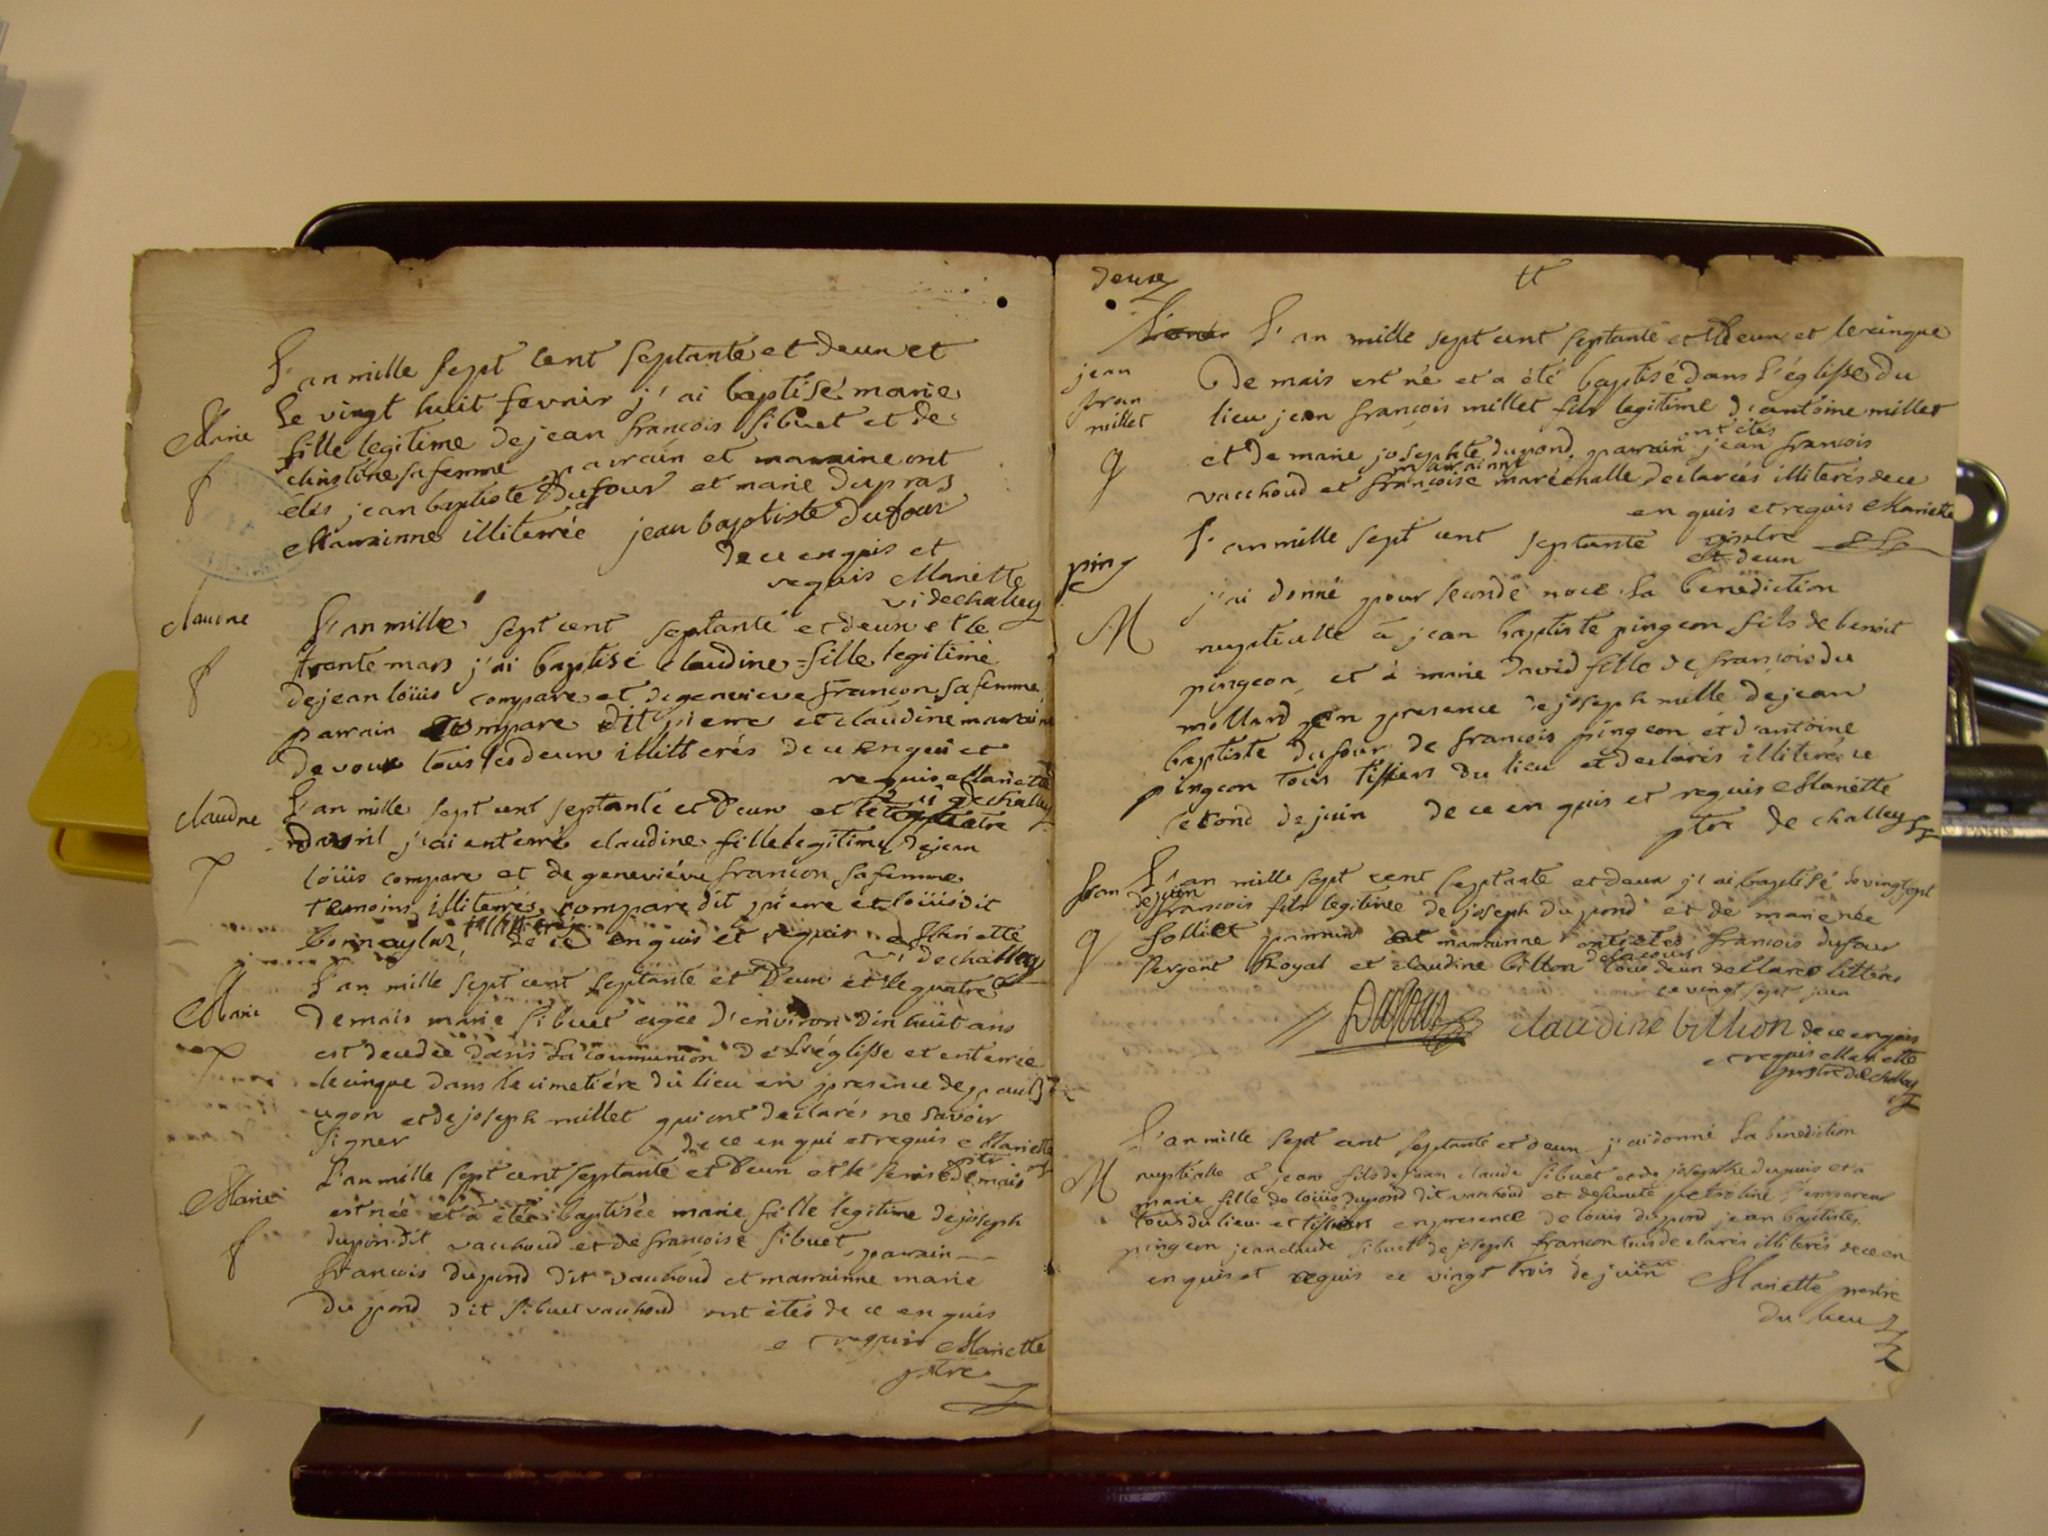 L'an mille sept cent septante et deux et
le vingt huit fevrir j'ai baptisé marie
Marie
fille legitime de jean françois sibuet et de
christine sa femme parrain et marraine ont
étés jean baptiste Dufour et marie dupraz
Marrainne illiterrée jean baptiste dufour
de ce enquis et
requis Mariette
vi de challey
claudne
L'an mille sept cent septante et deux et le
trente mars j'ai baptisé claudine fille legitime
de jean loüis compare et de genevieve françon sa femme
parrain compare dit pierre et claudine marraine
devoux tous les deux illitterés de ce enquis et
requis Mariette
vi de challey
claudne
L'an mille sept cent septante et deux et le quatre
d'avril j'ai enterré claudine fille legitime de jean
loüis compare et de geneviéve françon sa femme
temoins illiterrés compare dit pierre et loüis dit
de ce enquis et requis Mariette
vi de challey
Marie
L'an mille sept cent septante et deux et le quatre
de mais marie sibuet agée d'environ dix huit ans
est decedée dans la communion de l'églisse et enterrée
le cinque dans le cimetiére du lieu en presence de paul
ugon et de joseph millet qui ont declarés ne savoir
signer de ce en qui et requis Mariette
ptre
Marie
L'an mille sept cent septante et deux et le seise de mais
est née et a étée baptisée marie fille legitime de joseph
dupon dit vachoud et de françoise sibuet parrain
françois dupond dit vachoud et marrainne marie
du pond dit sibuet vachoud ont étés de ce enquis
e requis Mariette
ptre
deux
tt
L'an mille sept cent septante et deux et le cinque
jean
de mais est né et a été baptisé dans l'églisse du
fran
lieu jean françois millet fils legitime d'antoine millet
millet
ont étés
et de marie josephte dupond parrain jean françois
marrainne
vacchoud et françoise maréchalle declarés illiterés de ce
en quis et requis Mariette
L'an mille sept cent septante
et deux
ping
j'ai donné pour seconde noce la benediction
M
nuptialle à jean baptiste pingeon fils de benoit
pingeon et à marie david fille de françois du
mollard en presence de joseph mille de jean
baptiste dufour de françois pingeon et d'antoine
pingeon tous tissiers du lieu et declarés illiterés ce
second de juin de ce en quis et requis Mariette
ptre de challey
L'an mille sept cent septante et deux j'ai baptisé le vingt sept
fran
de juin
françois fils legitime de joseph du pond et de marie née
solliet parrain et marrainne ont étés françois dufour
sergent Royal et claudine billon tous deux declarés litterés
ce vingt sept juin
Dufour claudine billion de ce enquis
et requis Mariette
prestre de challey
L'an mille sept cent septante et deux j'ai donné la benediction
M
nuptialle à jean fils de jean claude sibuet et de josephte dupuis et à
marie fille de loüis dupond dit vachoud et defunte petroline l'empereur
tous du lieu et tissiers en presence de louis dupond jean baptiste
pingeon jean claude sibuet de joseph françon tous declarés illiterés de ce en
enquis et requis ce vingt trois de juin Mariette prestre
du lieu